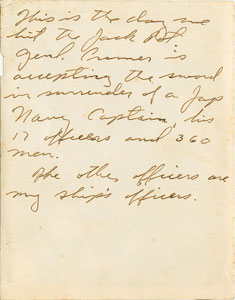 This is the day we
hit the Jack Pot
Genl. Turner is
accepting the sword
in surrender of a Jap
Navy Captain, his
17 officers and 360
men.
The other officers are
my ship's officers.